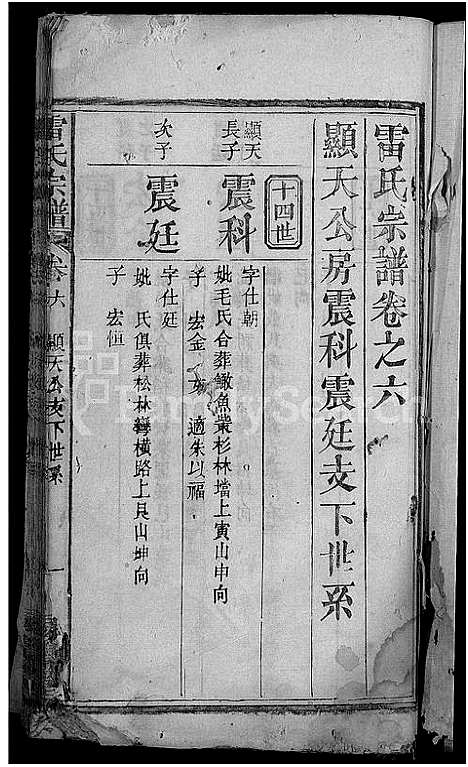 雷氏宗譜卷之六
顯天公房震科震廷支下世系
十四世
顯天長子
震科
字仕朝
妣毛氏合葬鰍魚業杉林壋上寅山申向
子 宏金 女 適朱以福
次子
震廷
字仕廷
妣 氏俱葬松林彎橫路上艮山坤向
子 宏恒
雷氏宗譜 卷六 顯天公支下世系 一